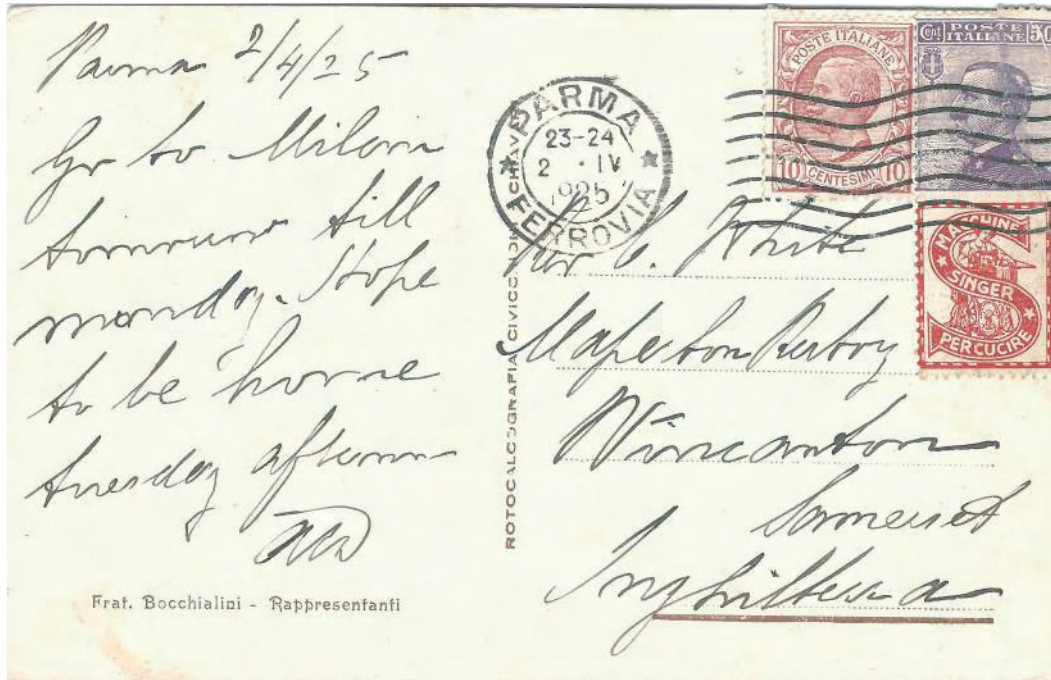 Parma 2/4/25
Go to Milan
tomorrow till
monday. Hope
to be home
tuesday aftern
Frat. Bocchialini - Rappresentanti
ROTOCALCOGRAFIA CIVICCHIONI CHIAVARI
PARMA
23-24
2 · IV
1925
FERROVIA
POSTE ITALIANE
10 CENTESIMI 10
CENT POSTE ITALIANE 50
MACCHINE
SINGER
PER CUCIRE
White
Maperton
Wincanton
Somerset
Inghilterra